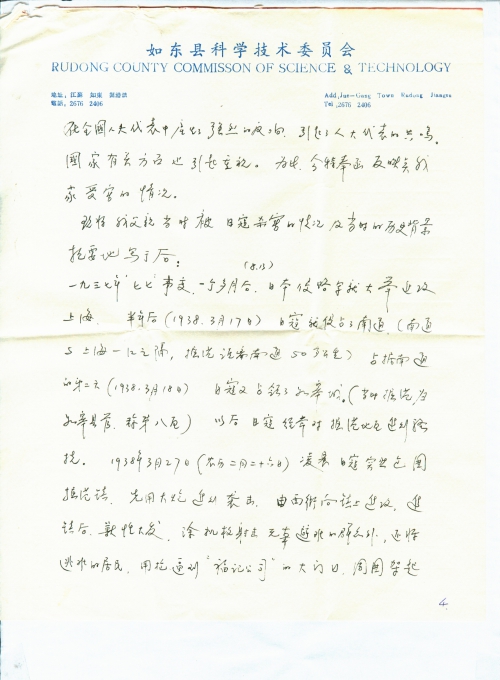 如东县科学技术委员会
RUDONG COUNTY COMMISSON OF SCIENCE & TECHNOLOGY
地址：江苏 如东 掘港镇
電話：2676 2406
Add,Jue-Gang Town Rudong Jiangsu
Tel,2676 2406
在全國人大代表中産生了强烈的反响，引起了人大代表的共鸣。
國家有关方面也引起重视。为此，今特奉函反映关于我
家受害的情况。
现将我父親当时被日寇杀害的情况及当时的历史背景
扼要地写于后：
(8.13)
一九三七年"七七"事变，一个多月后，日本侵略军就大举进攻
上海。半年后（1938.3月17日）日寇就侵占了南通，（南通
与上海一江之隔，掘港離南通50多公里）占据南通
的第二天（1938.3月18日）日寇又占领了如皋城。（当时掘港为
如皋县属，称第八区）以后日寇经常对掘港地区进行骚
扰。1938年3月27日（农历二月二十六日）凌晨日寇突然包围
掘港镇，先用大炮进行袭击，由西街向镇上进攻，进
镇后，兽性大发，除机枪射击无辜逃难的群众外，还将
逃难的居民，用枪逼到"福记公司"的大门口，周围架起
4.